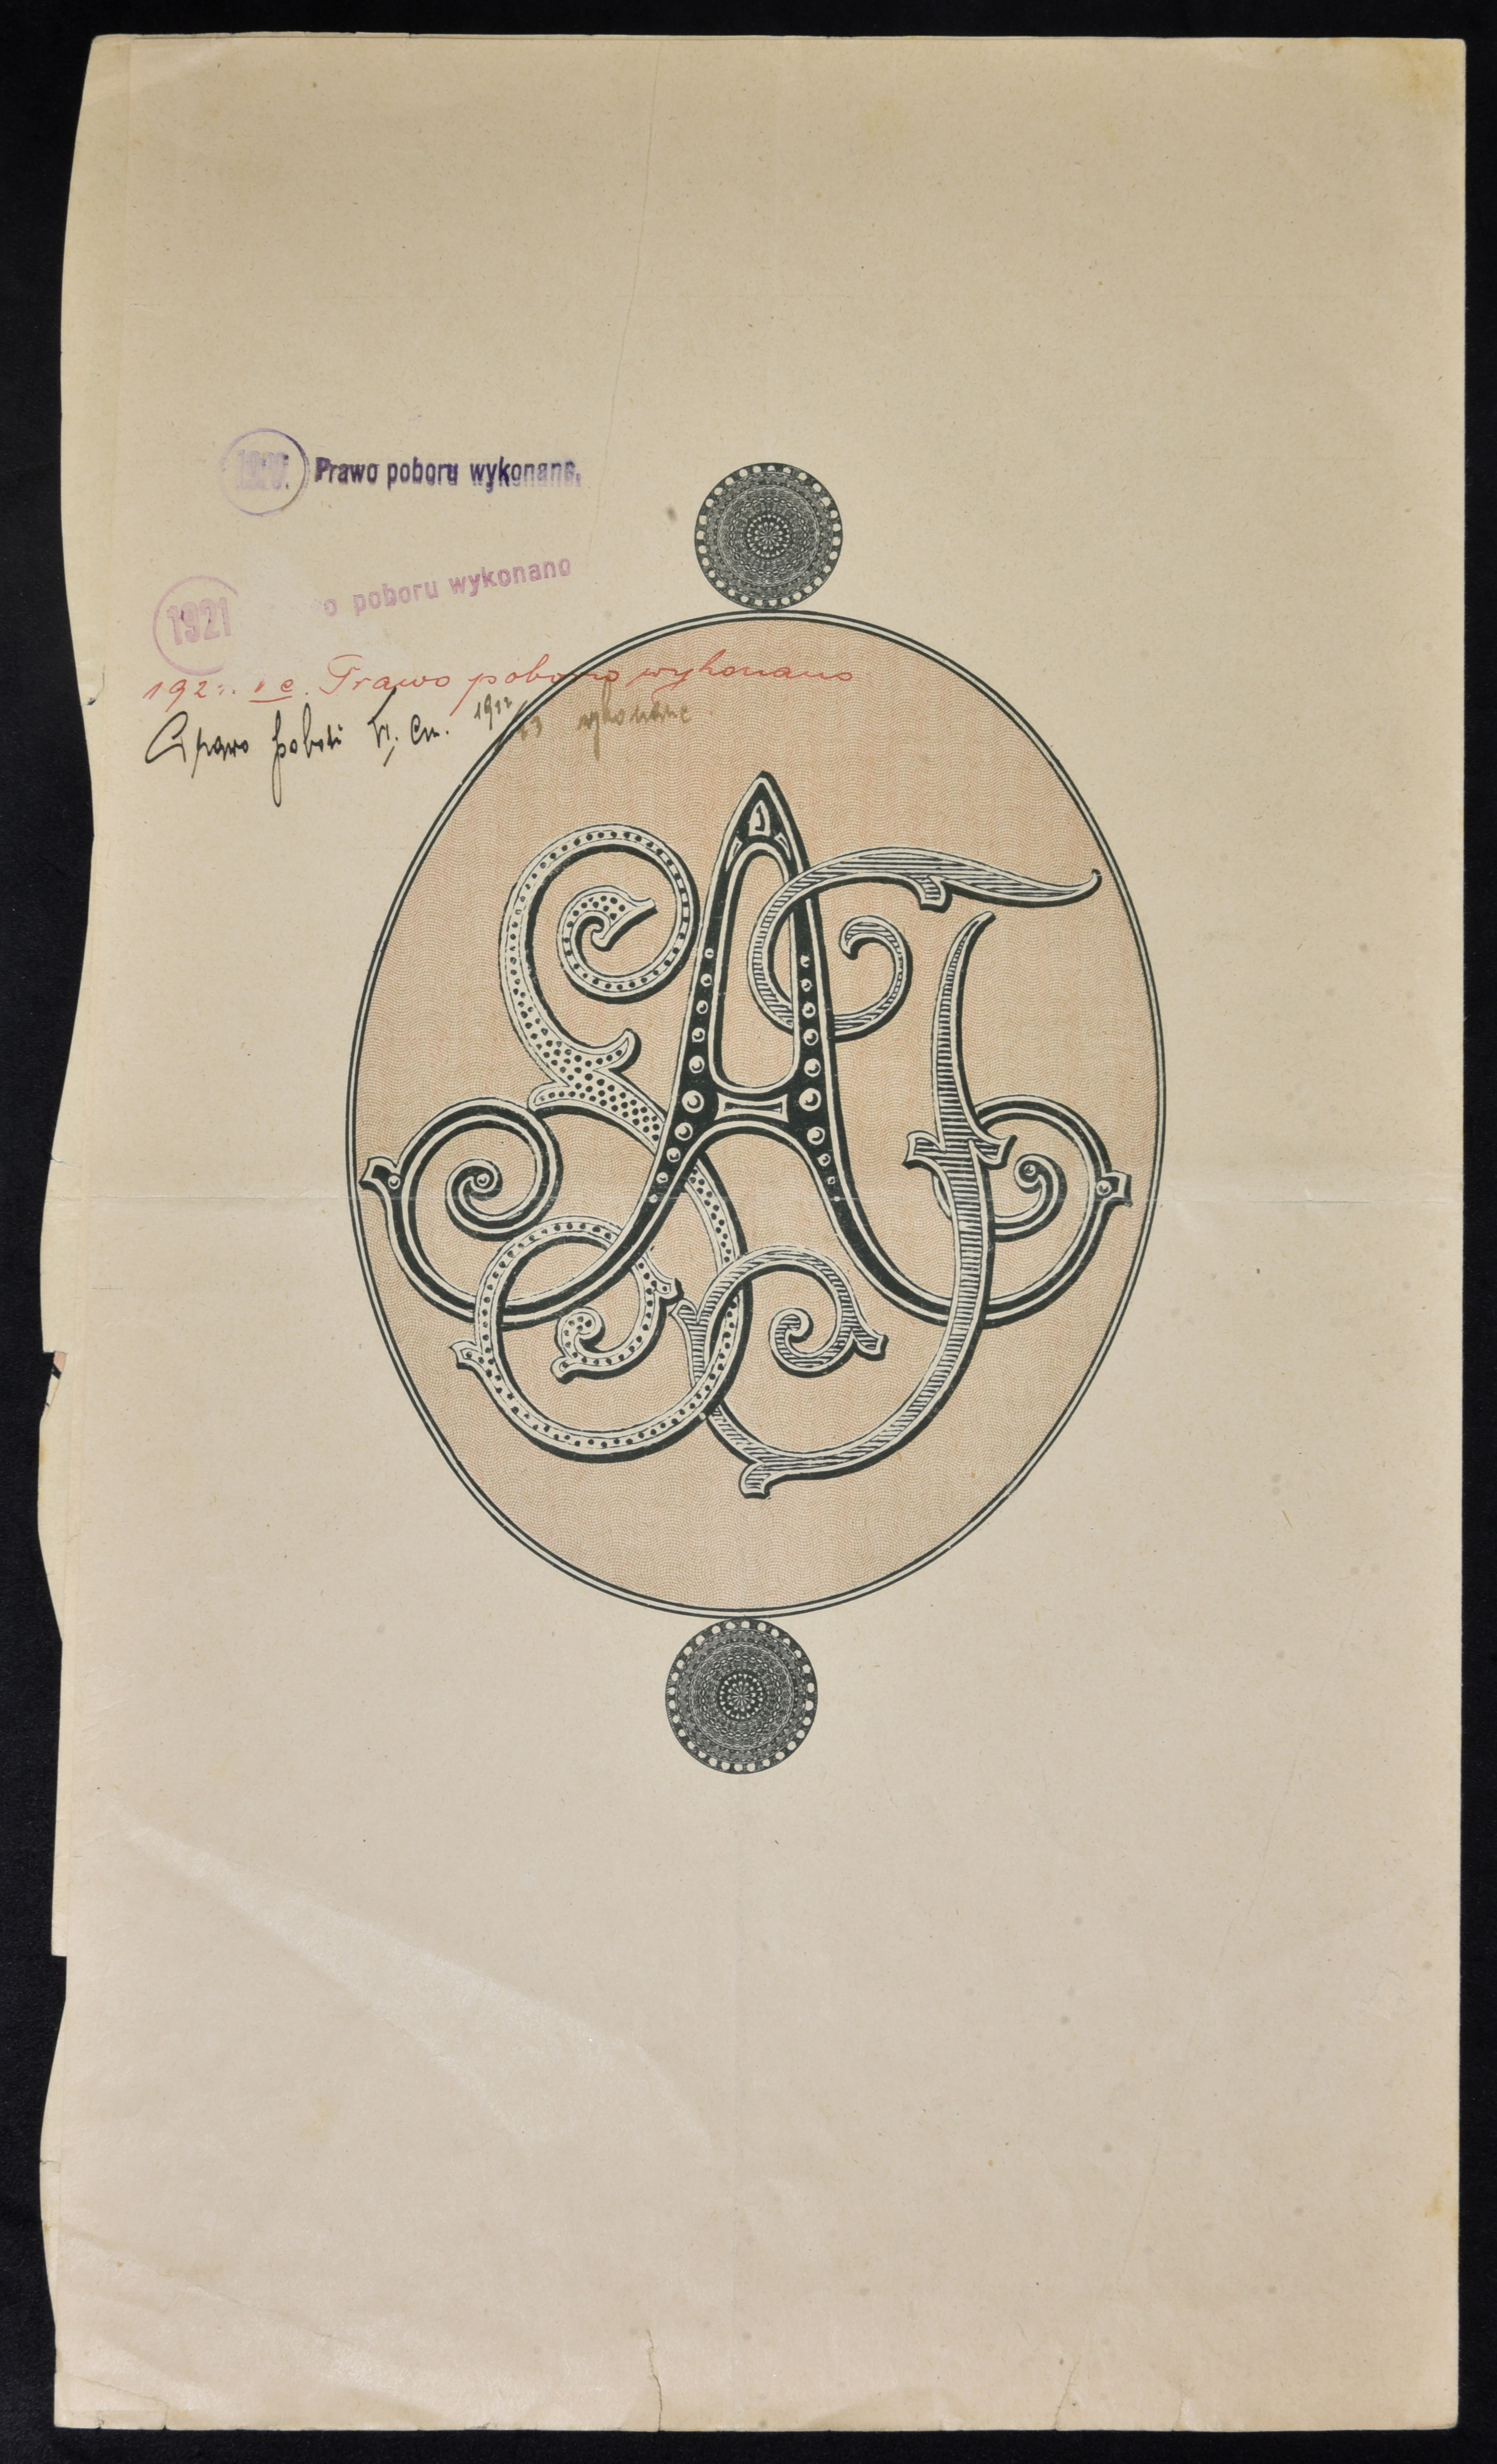 1920. Prawo poboru wykonano.
1921 o poboru wykonano
192 e. Prawo poboru wykonano
Prawo poboru VI. Em. wykonane
SAF